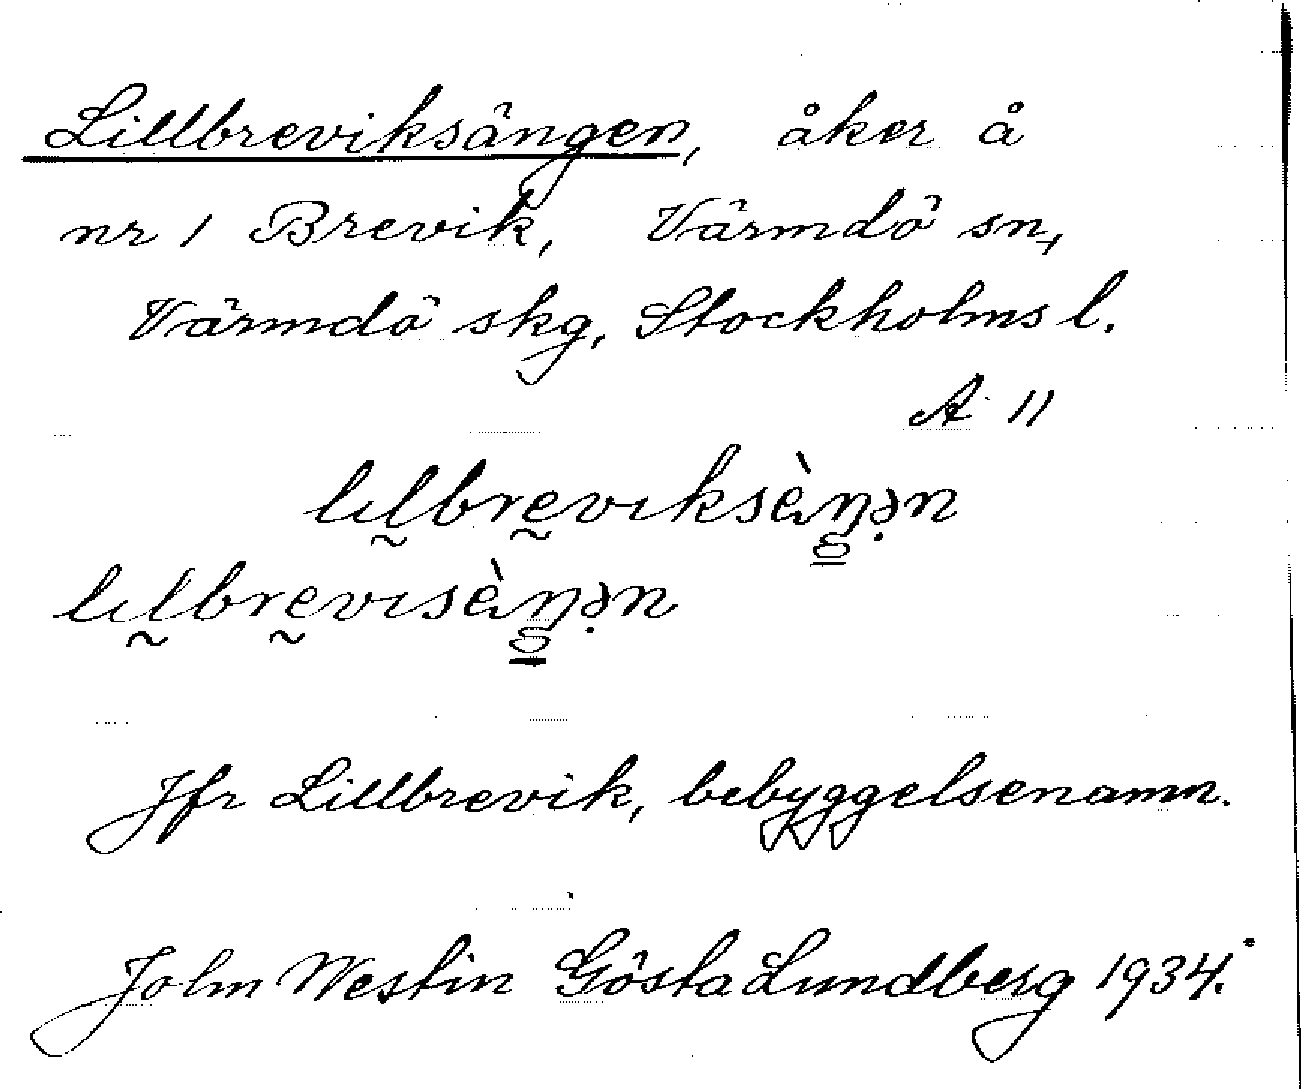 Lillbreviksängen, åker å
nr 1 Brevik, Värmdö sn,
Värmdö skg, Stockholms l.
A 11
lılbrevıksὰŋən
lılbrevısὰŋən
Jfr Lillbrevik, bebyggelsenamn.
John Westin Gösta Lundberg 1934.